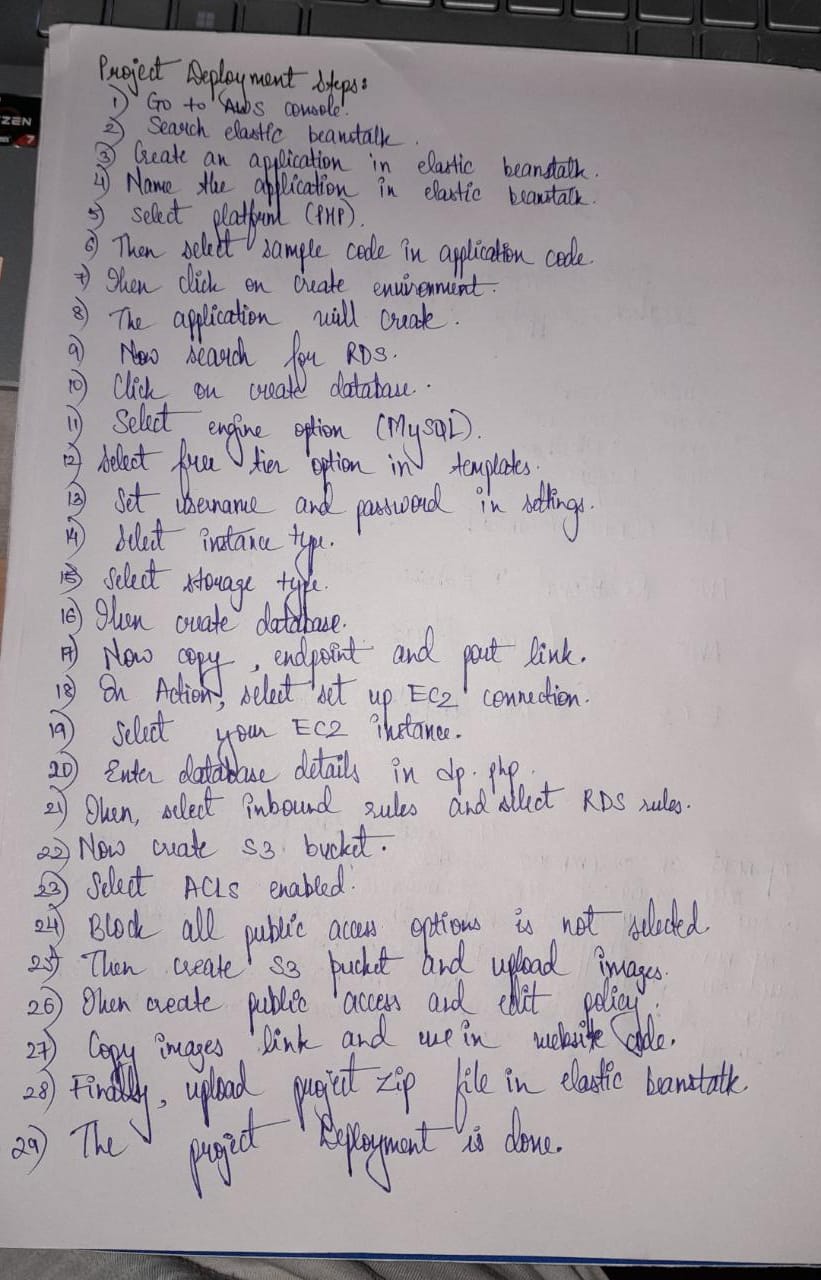 ZEN
7
Project Deployment Steps:
1) Go to AWS console.
2) Search elastic beanstalk.
3) Create an application in elastic beanstalk.
4) Name the application in elastic beanstalk.
5) Select platform (PHP).
6) Then select sample code in application code.
7) Then click on create environment.
8) The application will create.
9) Now search for RDS.
10) Click on create database.
11) Select engine option (MySQL).
12) Select free tier option in templates.
13) Set username and password in settings.
14) Select instance type.
15) Select storage type.
16) Then create database.
17) Now copy, endpoint and port link.
18) In Action, select set up EC2 connection.
19) Select your EC2 instance.
20) Enter database details in dp.php.
21) Then, select inbound rules and select RDS rules.
22) Now create S3 bucket.
23) Select ACLS enabled.
24) Block all public access options is not selected.
25) Then create S3 bucket and upload images.
26) Then create public access and edit policy.
27) Copy images link and use in website code.
28) Finally, upload project zip file in elastic beanstalk.
29) The project Deployment is done.